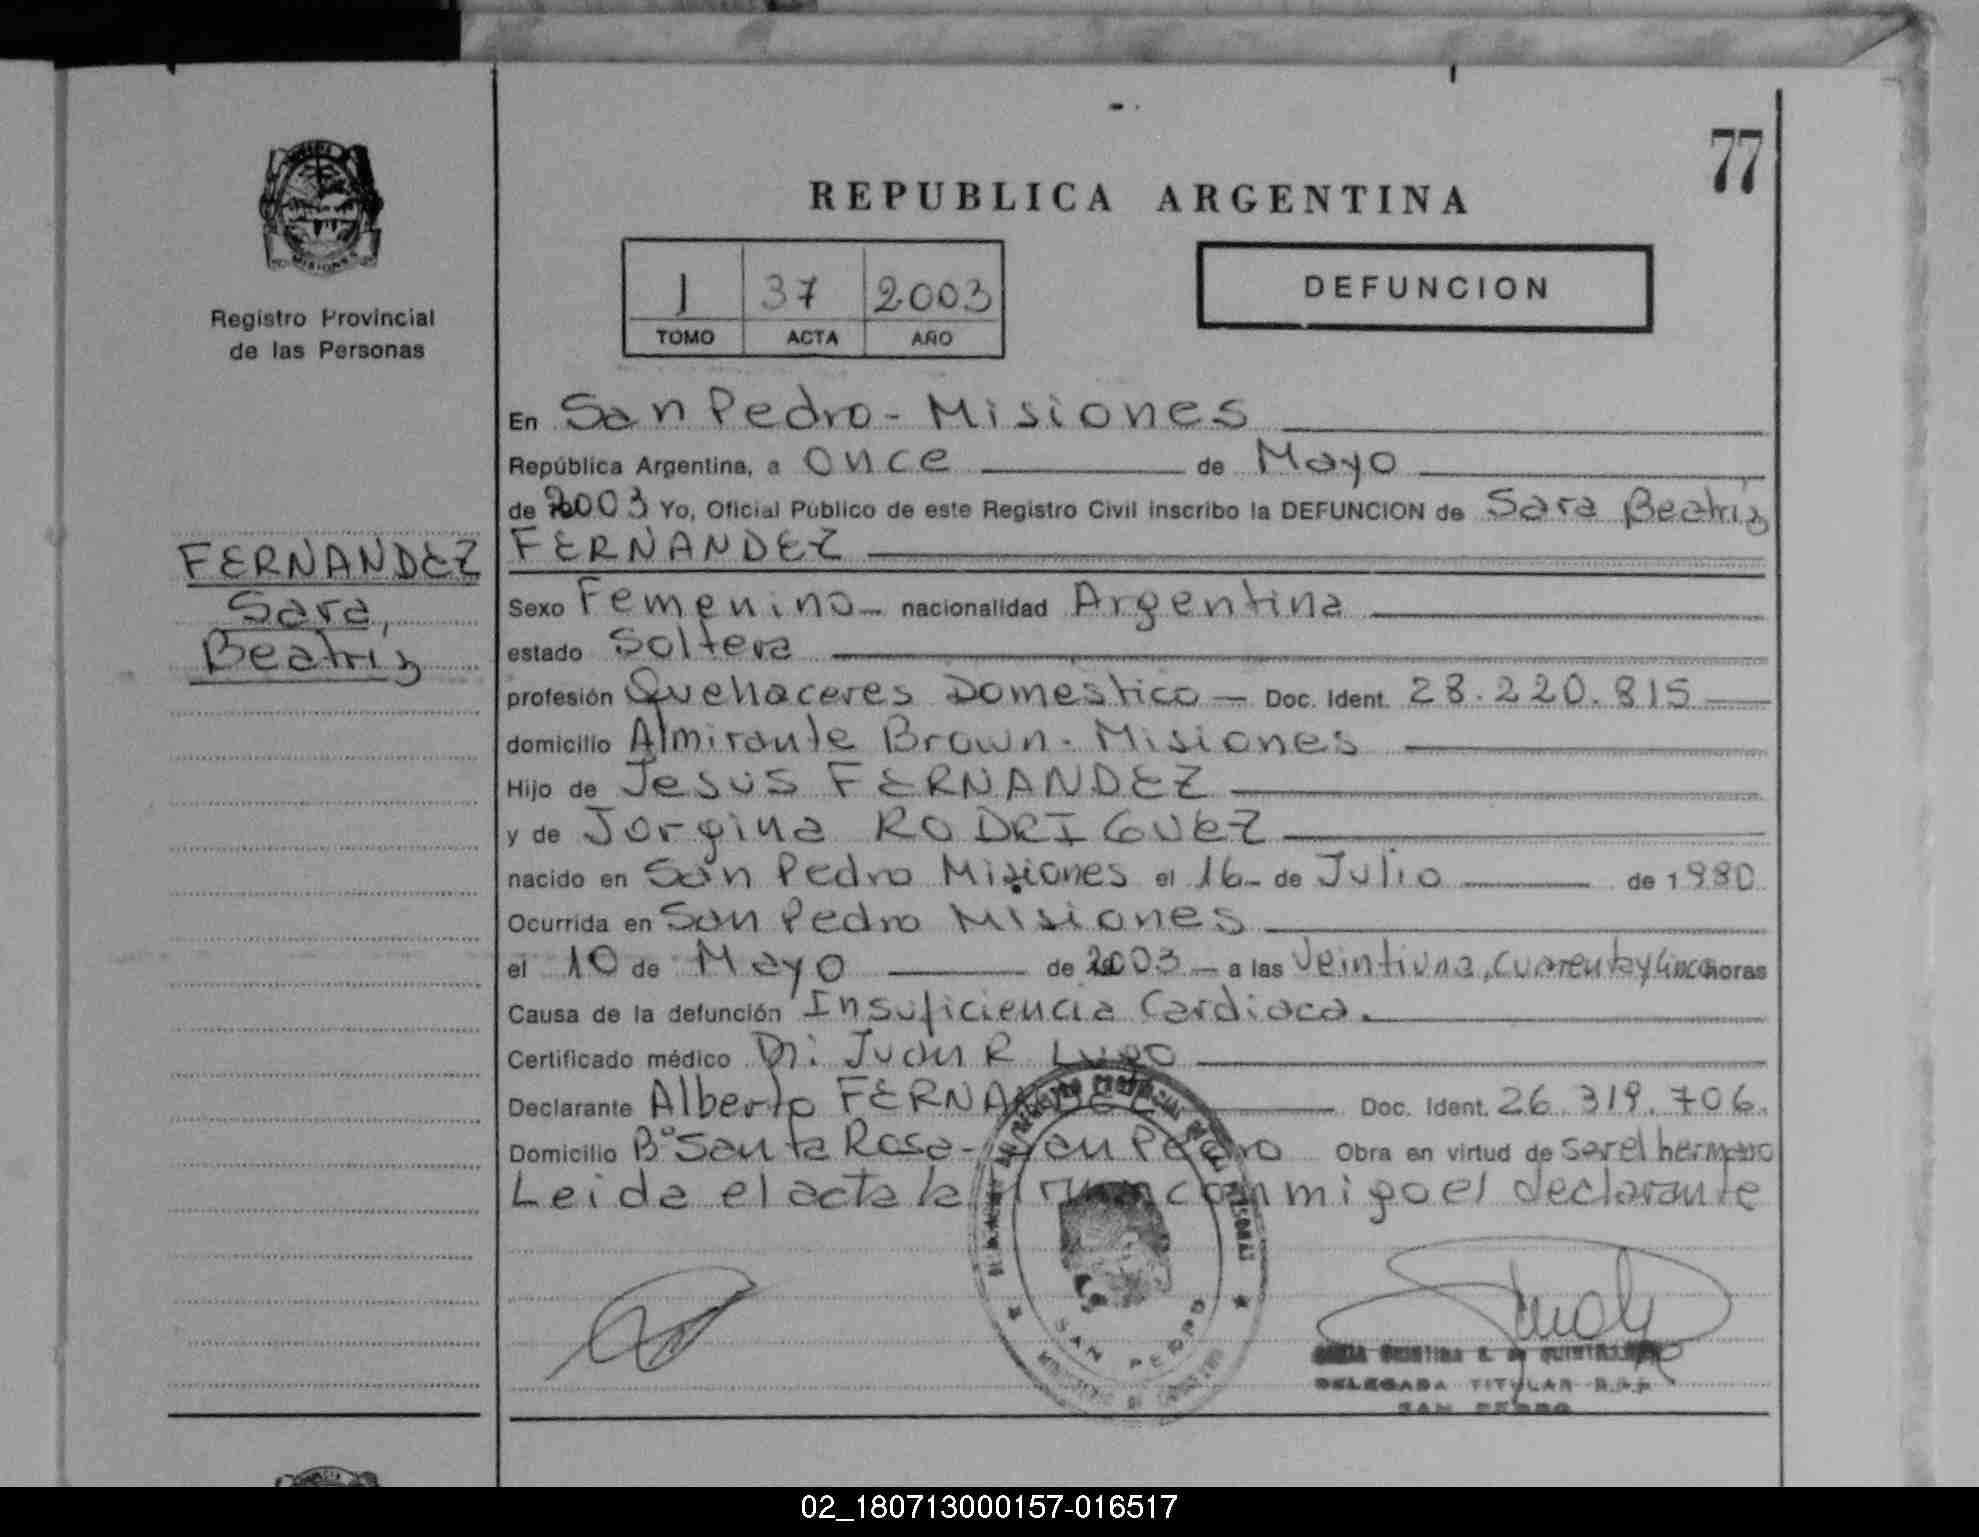 77
REPUBLICA ARGENTINA
1 37 2003
TOMO ACTA AÑO
DEFUNCION
MISIONES
Registro Provincial
de las Personas
FERNANDEZ
Sara,
Beatriz
En San Pedro - Misiones
República Argentina, a once de Mayo
de 2003 Yo, Oficial Público de este Registro Civil inscribo la DEFUNCION de Sara Beatriz
FERNANDEZ
Sexo Femenino nacionalidad Argentina
estado Soltera
profesión Quehaceres Domestico Doc. Ident. 28.220.815
domicilio Almirante Brown - Misiones
Hijo de Jesus FERNANDEZ
y de Jorgina RODRIGUEZ
nacido en San Pedro Misiones el 16 de Julio de 1980
Ocurrida en San Pedro Misiones
el 10 de Mayo de 2003 a las Veintiuna, Cuarenta y Cinco horas
Causa de la defunción Insuficiencia Cardiaca.
Certificado médico Dr: Juan R Lugo
Declarante Alberto FERNANDEZ Doc. Ident. 26.319.706.
Domicilio B° Santa Rosa - San Pedro Obra en virtud de ser el hermano
Leida el acta la firma conmigo el declarante
SAN PEDRO
DELEGADA TITULAR R.P.P.
SAN PEDRO
02_180713000157-016517